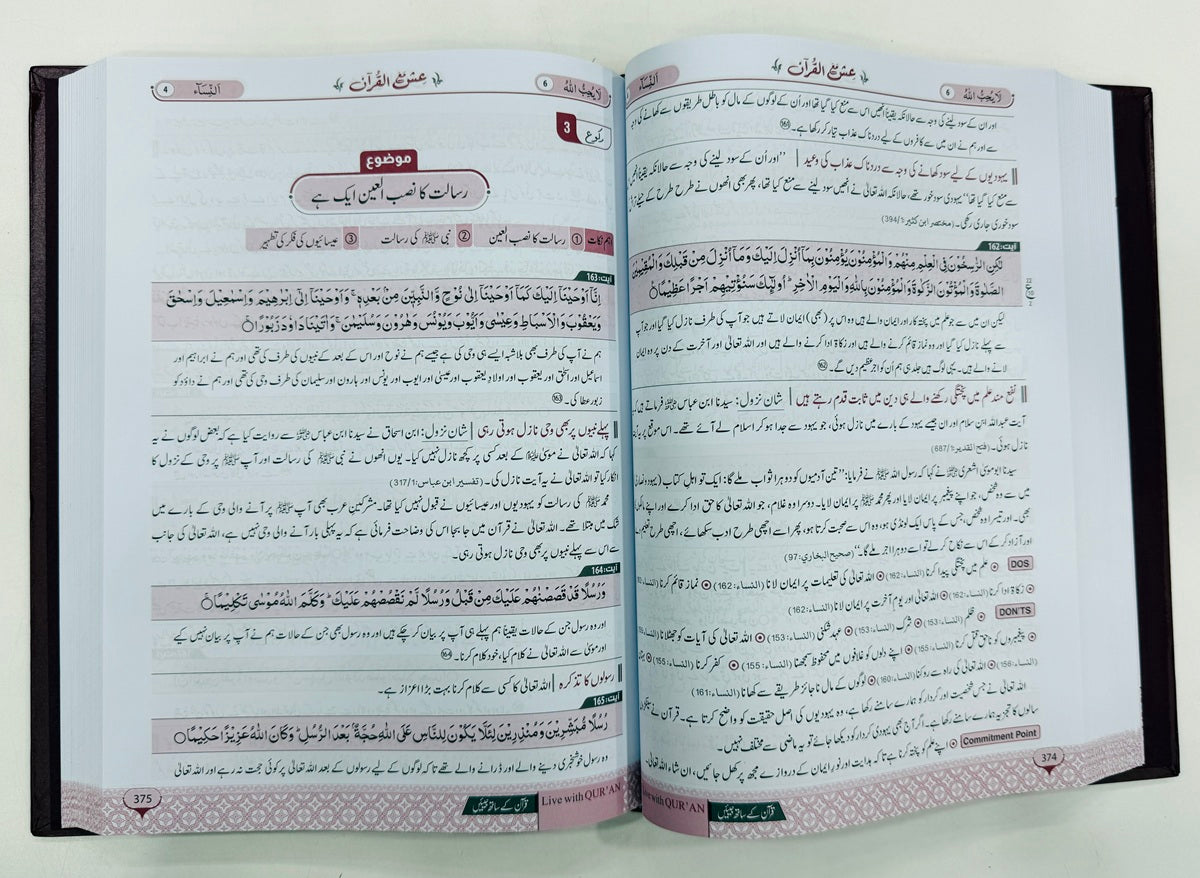 لَا يُحِبُّ اللهُ 6
عشق القرآن
النِّسَآء
اور ان کے سود لینے کی وجہ سے حالانکہ یقیناً انھیں اس سے منع کیا گیا تھا اور اُن کے لوگوں کے مال کو باطل طریقوں سے کھانے کی وجہ
سے اور ہم نے ان میں سے کافروں کے لیے دردناک عذاب تیار کر رکھا ہے۔ (161)
یہودیوں کے لیے سود کھانے کی وجہ سے دردناک عذاب کی وعید | "اور اُن کے سود لینے کی وجہ سے حالانکہ یقیناً انھیں
سے منع کیا گیا تھا" یہودی سود خور تھے، حالانکہ اللہ تعالیٰ نے انھیں سود لینے سے منع کیا تھا، پھر بھی انھوں نے طرح طرح کے حیلے
سود خوری جاری رکھی۔ (مختصر ابن کثیر: 394/1)
آیت: 162
لٰكِنِ الرّٰسِخُوْنَ فِی الْعِلْمِ مِنْهُمْ وَالْمُؤْمِنُوْنَ یُؤْمِنُوْنَ بِمَاۤ اُنْزِلَ اِلَیْكَ وَمَاۤ اُنْزِلَ مِنْ قَبْلِكَ وَالْمُقِیْمِیْنَ
الصَّلٰوةَ وَالْمُؤْتُوْنَ الزَّكٰوةَ وَالْمُؤْمِنُوْنَ بِاللّٰهِ وَالْیَوْمِ الْاٰخِرِ ؕ اُولٰٓىِٕكَ سَنُؤْتِیْهِمْ اَجْرًا عَظِیْمًا
لیکن ان میں سے جو علم میں پختہ کار اور ایمان والے ہیں وہ اس پر (بھی) ایمان لاتے ہیں جو آپ کی طرف نازل کیا گیا اور جو آپ
سے پہلے نازل کیا گیا اور وہ نماز قائم کرنے والے ہیں اور زکاۃ ادا کرنے والے ہیں اور اللہ تعالیٰ اور آخرت کے دن پر وہ ایمان
لانے والے ہیں۔ یہی لوگ ہیں جلد ہی ہم اُن کو اجرِ عظیم دیں گے۔ (162)
نفع مند علم میں پختگی رکھنے والے ہی دین میں ثابت قدم رہتے ہیں | شانِ نزول: سیدنا ابن عباس ؓ فرماتے ہیں
آیت عبداللہ ابن سلام اور ان جیسے یہود کے بارے میں نازل ہوئی، جو یہود سے جدا ہو کر اسلام لے آئے تھے۔ اس موقع پر یہ
نازل ہوئی۔ (فتح القدیر: 687/1)
سیدنا ابو موسیٰ اشعری ؓ نے کہا کہ رسول اللہ ﷺ نے فرمایا: "تین آدمیوں کو دوہرا ثواب ملے گا: ایک تو اہلِ کتاب
میں سے وہ شخص، جو اپنے پیغمبر پر ایمان لایا اور پھر محمد ﷺ پر ایمان لایا۔ دوسرا وہ غلام، جو اللہ تعالیٰ کا حق ادا کرے اور اپنے
بھی۔ اور تیسرا وہ شخص، جس کے پاس ایک لونڈی ہو، وہ اس سے محبت کرتا ہو، پھر اسے اچھی طرح ادب سکھائے، اچھی طرح
اور آزاد کر کے اس سے نکاح کر لے تو اسے دوہرا اجر ملے گا۔" (صحيح البخاري: 97)
DOS علم میں پختگی پیدا کرنا (النساء: 162) اللہ تعالیٰ کی تعلیمات پر ایمان لانا (النساء: 162) نماز قائم کرنا (النساء:
زکاۃ ادا کرنا (النساء: 162) اللہ تعالیٰ اور یومِ آخرت پر ایمان لانا (النساء: 162)
DON'TS ظلم (النساء: 153) شرک (النساء: 153) عہد شکنی (النساء: 153) اللہ تعالیٰ کی آیات کو جھٹلانا
پیغمبروں کو ناحق قتل کرنا (النساء: 155) اپنے دلوں کو غلافوں میں محفوظ سمجھنا (النساء: 155) کفر کرنا (النساء: 155)
(النساء: 156) اللہ تعالیٰ کی راہ سے روکنا (النساء: 160) لوگوں کے مال ناجائز طریقے سے کھانا (النساء: 161)
اللہ تعالیٰ نے جس شخصیت اور کردار کو ہمارے سامنے رکھا ہے، وہ یہودیوں کی اصل حقیقت کو واضح کرتا ہے۔ قرآن نے
سالوں کا تجزیہ ہمارے سامنے رکھا ہے۔ اگر آج بھی یہودی کردار کو دیکھا جائے تو یہ ماضی سے مختلف نہیں۔
Commitment Point اپنے علم کو پختہ کرنا ہے تاکہ ہدایت اور نورِ ایمان کے دروازے مجھ پر کھل جائیں، ان شاء اللہ تعالیٰ
374
قرآن کے ساتھ جیئیں
Live with QUR'AN
لَا يُحِبُّ اللهُ 6
عشق القرآن
النِّسَآء 4
رکوع 3
موضوع
رسالت کا نصب العین ایک ہے
اہم نکات ① رسالت کا نصب العین ② نبی ﷺ کی رسالت ③ عیسائیوں کی فکر کی تطہیر
آیت: 163
اِنَّاۤ اَوْحَیْنَاۤ اِلَیْكَ كَمَاۤ اَوْحَیْنَاۤ اِلٰی نُوْحٍ وَّالنَّبِیّٖنَ مِنْۢ بَعْدِهٖ ۚ وَاَوْحَیْنَاۤ اِلٰۤی اِبْرٰهِیْمَ وَاِسْمٰعِیْلَ وَاِسْحٰقَ
وَیَعْقُوْبَ وَالْاَسْبَاطِ وَعِیْسٰی وَاَیُّوْبَ وَیُوْنُسَ وَهٰرُوْنَ وَسُلَیْمٰنَ ۚ وَاٰتَیْنَا دَاوٗدَ زَبُوْرًا
ہم نے آپ کی طرف بھی بلاشبہ ایسے ہی وحی کی ہے جیسے ہم نے نوح اور اس کے بعد کے نبیوں کی طرف کی تھی اور ہم نے ابراہیم اور
اسماعیل اور اسحٰق اور یعقوب اور اولادِ یعقوب اور عیسیٰ اور ایوب اور یونس اور ہارون اور سلیمان کی طرف وحی کی تھی اور ہم نے داؤد کو
زبور عطا کی۔ (163)
پہلے نبیوں پر بھی وحی نازل ہوتی رہی | شانِ نزول: ابن اسحاق نے سیدنا ابن عباس ؓ سے روایت کیا ہے کہ بعض لوگوں نے یہ
کہا کہ اللہ تعالیٰ نے موسیٰ علیہ السلام کے بعد کسی پر کچھ نازل نہیں کیا۔ یوں انھوں نے نبی ﷺ کی رسالت اور آپ ﷺ پر وحی کے نزول کا
انکار کیا تو اللہ تعالیٰ نے یہ آیت نازل کی۔ (تفسیر ابن عباس: 317/1)
محمد ﷺ کی رسالت کو یہودیوں اور عیسائیوں نے قبول نہیں کیا تھا۔ مشرکینِ عرب بھی آپ ﷺ پر آنے والی وحی کے بارے میں
شک میں مبتلا تھے۔ اللہ تعالیٰ نے قرآن میں جا بجا اس کی وضاحت فرمائی ہے کہ یہ پہلی بار آنے والی وحی نہیں ہے، اللہ تعالیٰ کی جانب
سے اس سے پہلے نبیوں پر بھی وحی نازل ہوتی رہی۔
آیت: 164
وَرُسُلًا قَدْ قَصَصْنٰهُمْ عَلَیْكَ مِنْ قَبْلُ وَرُسُلًا لَّمْ نَقْصُصْهُمْ عَلَیْكَ ؕ وَكَلَّمَ اللّٰهُ مُوْسٰی تَكْلِیْمًا
اور وہ رسول جن کے حالات یقیناً ہم پہلے ہی آپ پر بیان کر چکے ہیں اور وہ رسول بھی جن کے حالات ہم نے آپ پر بیان نہیں کیے
اور موسیٰ سے اللہ تعالیٰ نے کلام کیا، خود کلام کرنا۔ (164)
رسولوں کا تذکرہ | اللہ تعالیٰ کا کسی سے کلام کرنا بہت بڑا اعزاز ہے۔
آیت: 165
رُسُلًا مُّبَشِّرِیْنَ وَمُنْذِرِیْنَ لِئَلَّا یَكُوْنَ لِلنَّاسِ عَلَی اللّٰهِ حُجَّةٌۢ بَعْدَ الرُّسُلِ ؕ وَكَانَ اللّٰهُ عَزِیْزًا حَكِیْمًا
وہ رسول خوشخبری دینے والے اور ڈرانے والے تھے تاکہ لوگوں کے لیے رسولوں کے بعد اللہ تعالیٰ پر کوئی حجت نہ رہے اور اللہ تعالیٰ
375
قرآن کے ساتھ جیئیں
Live with QUR'AN